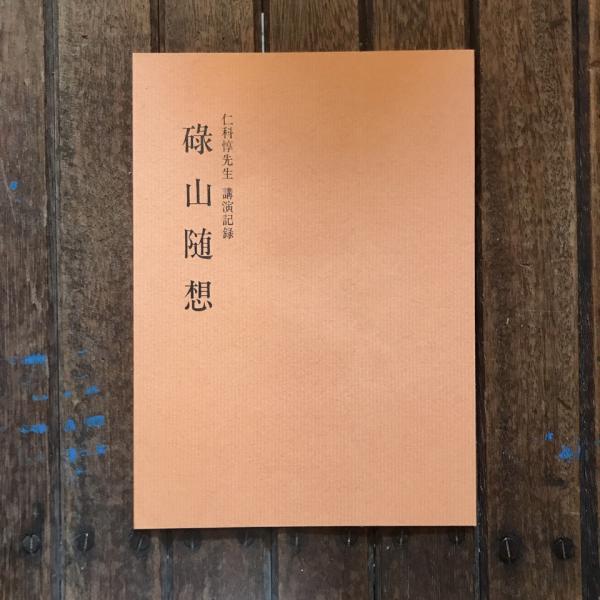 仁科惇先生 講演記録
碌山随想